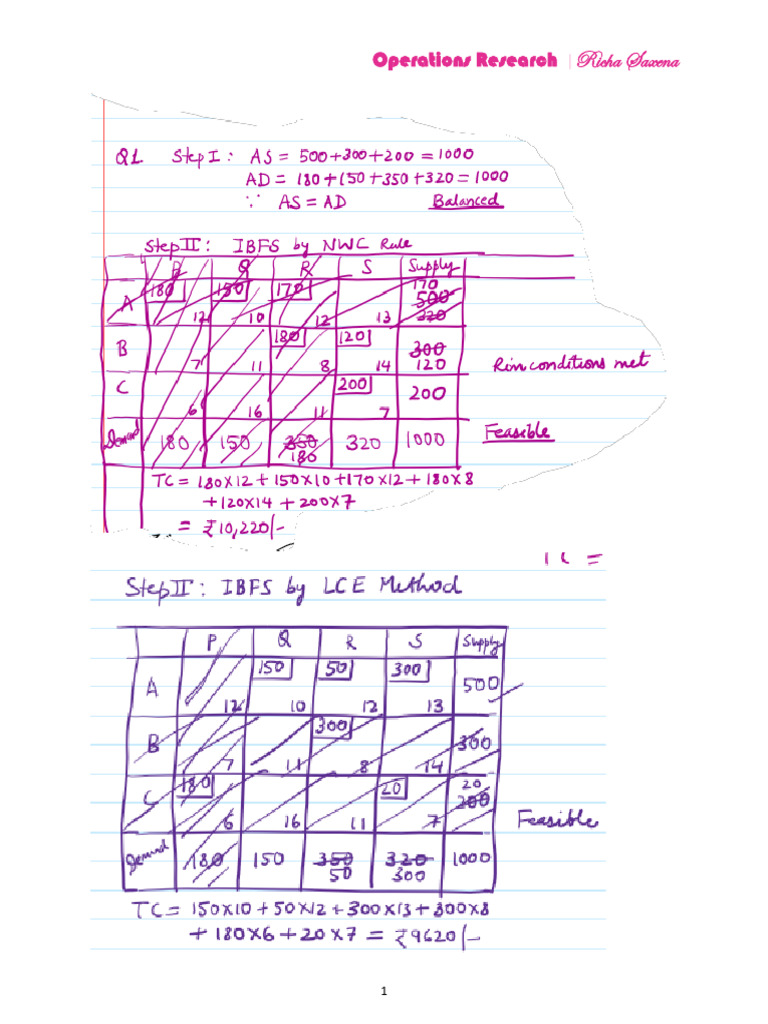 Operations Research | Richa Saxena
Q1 Step I: AS = 500+300+200 = 1000
AD = 180+150+350+320 = 1000
∵ AS = AD Balanced
Step II: IBFS by NWC Rule
P Q R S Supply
180 150 170 170
A 500
12 10 12 13 320
180 120 300
B 7 11 8 14 120
Rim conditions met
200
C 200
6 16 11 7
Demand 180 150 350 320 1000
180
Feasible
TC = 180x12 + 150x10 + 170x12 + 180x8
+ 120x14 + 200x7
= ₹10,220/-
TC =
Step II: IBFS by LCE Method
P Q R S Supply
150 50 300
A 500
12 10 12 13
300
B 300
7 11 8 14
180 20 20
C 200
6 16 11 7
Feasible
Demand 180 150 350 320 1000
50 300
TC = 150x10 + 50x12 + 300x13 + 300x8
+ 180x6 + 20x7 = ₹9620/-
1